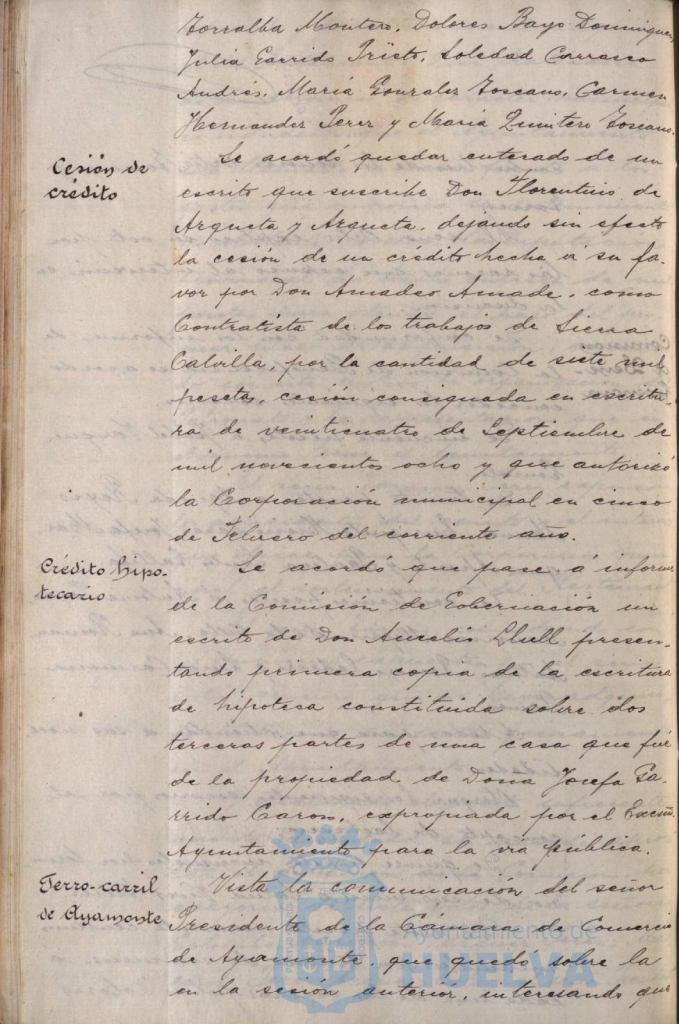 Torralba Montero, Dolores Bayo Dominguez,
Julia Garrido Prieto, Soledad Carrasco
Andrés, María Gonzalez Toscano, Carmen
Hernandez Perez y María Quintero Toscano.
Cesión de
crédito
Se acordó quedar enterado de un
escrito que suscribe Don Florentino de
Arqueta y Arqueta, dejando sin efecto
la cesión de un crédito hecha á su fa-
vor por Don Amadeo Amade, como
Contratista de los trabajos de Sierra
Calvilla, por la cantidad de siete mil
pesetas, cesión consignada en escritu-
ra de veinticuatro de Septiembre de
mil novecientos ocho y que autorizó
la Corporación municipal en cinco
de Febrero del corriente año.
Crédito hipo-
tecario
Se acordó que pase á informe
de la Comisión de Gobernación un
escrito de Don Aurelio Llull presen-
tando primera copia de la escritura
de hipoteca constituida sobre dos
terceras partes de una casa que fué
de la propiedad de Doña Josefa Ga-
rrido Caron, expropiada por el Excmo.
Ayuntamiento para la via pública.
Ferro-carril
de Ayamonte
Vista la comunicación del señor
Presidente de la Cámara de Comercio
de Ayamonte, que quedó sobre la
en la sesión anterior, interesando que
Ayuntamiento de
HUELVA